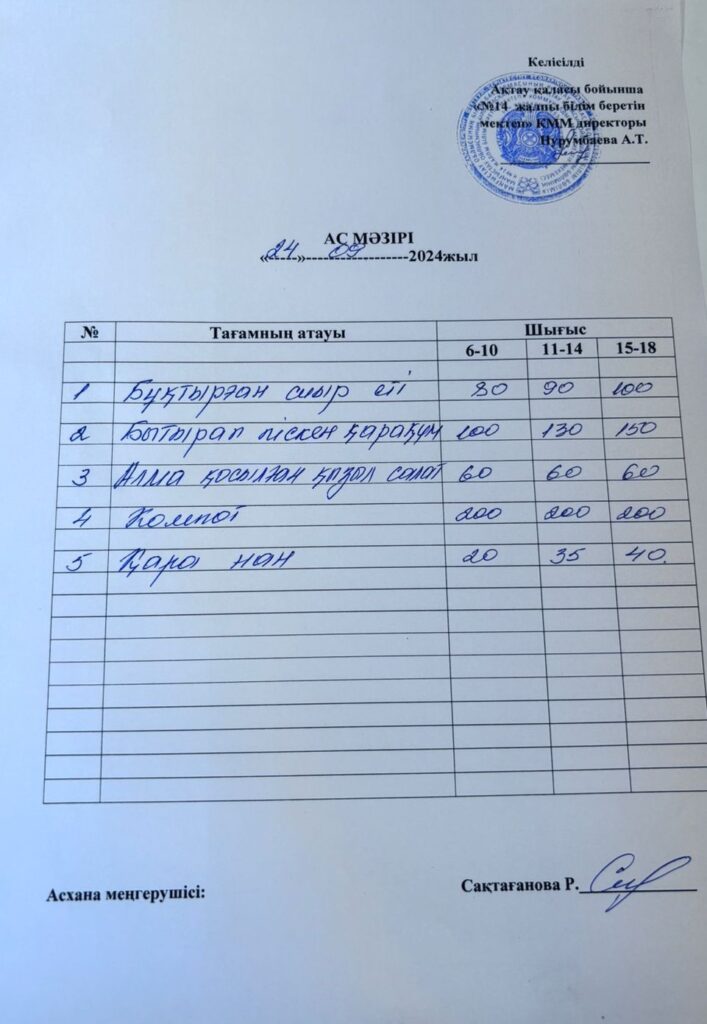 Келісілді
Ақтау қаласы бойынша
«№14 жалпы білім беретін
мектеп» КММ директоры
Нурумбаева А.Т.
АС МӘЗІРІ
«24»-----09-----------2024жыл
№ Тағамның атауы Шығыс
6-10 11-14 15-18
1 Бұқтырған сиыр еті 80 90 100
2 Бытырап піскен қарақұм 100 130 150
3 Алма қосылған қызыл салат 60 60 60
4 Компот 200 200 200
5 Қара нан 20 35 40.
Асхана меңгерушісі: Сақтағанова Р.